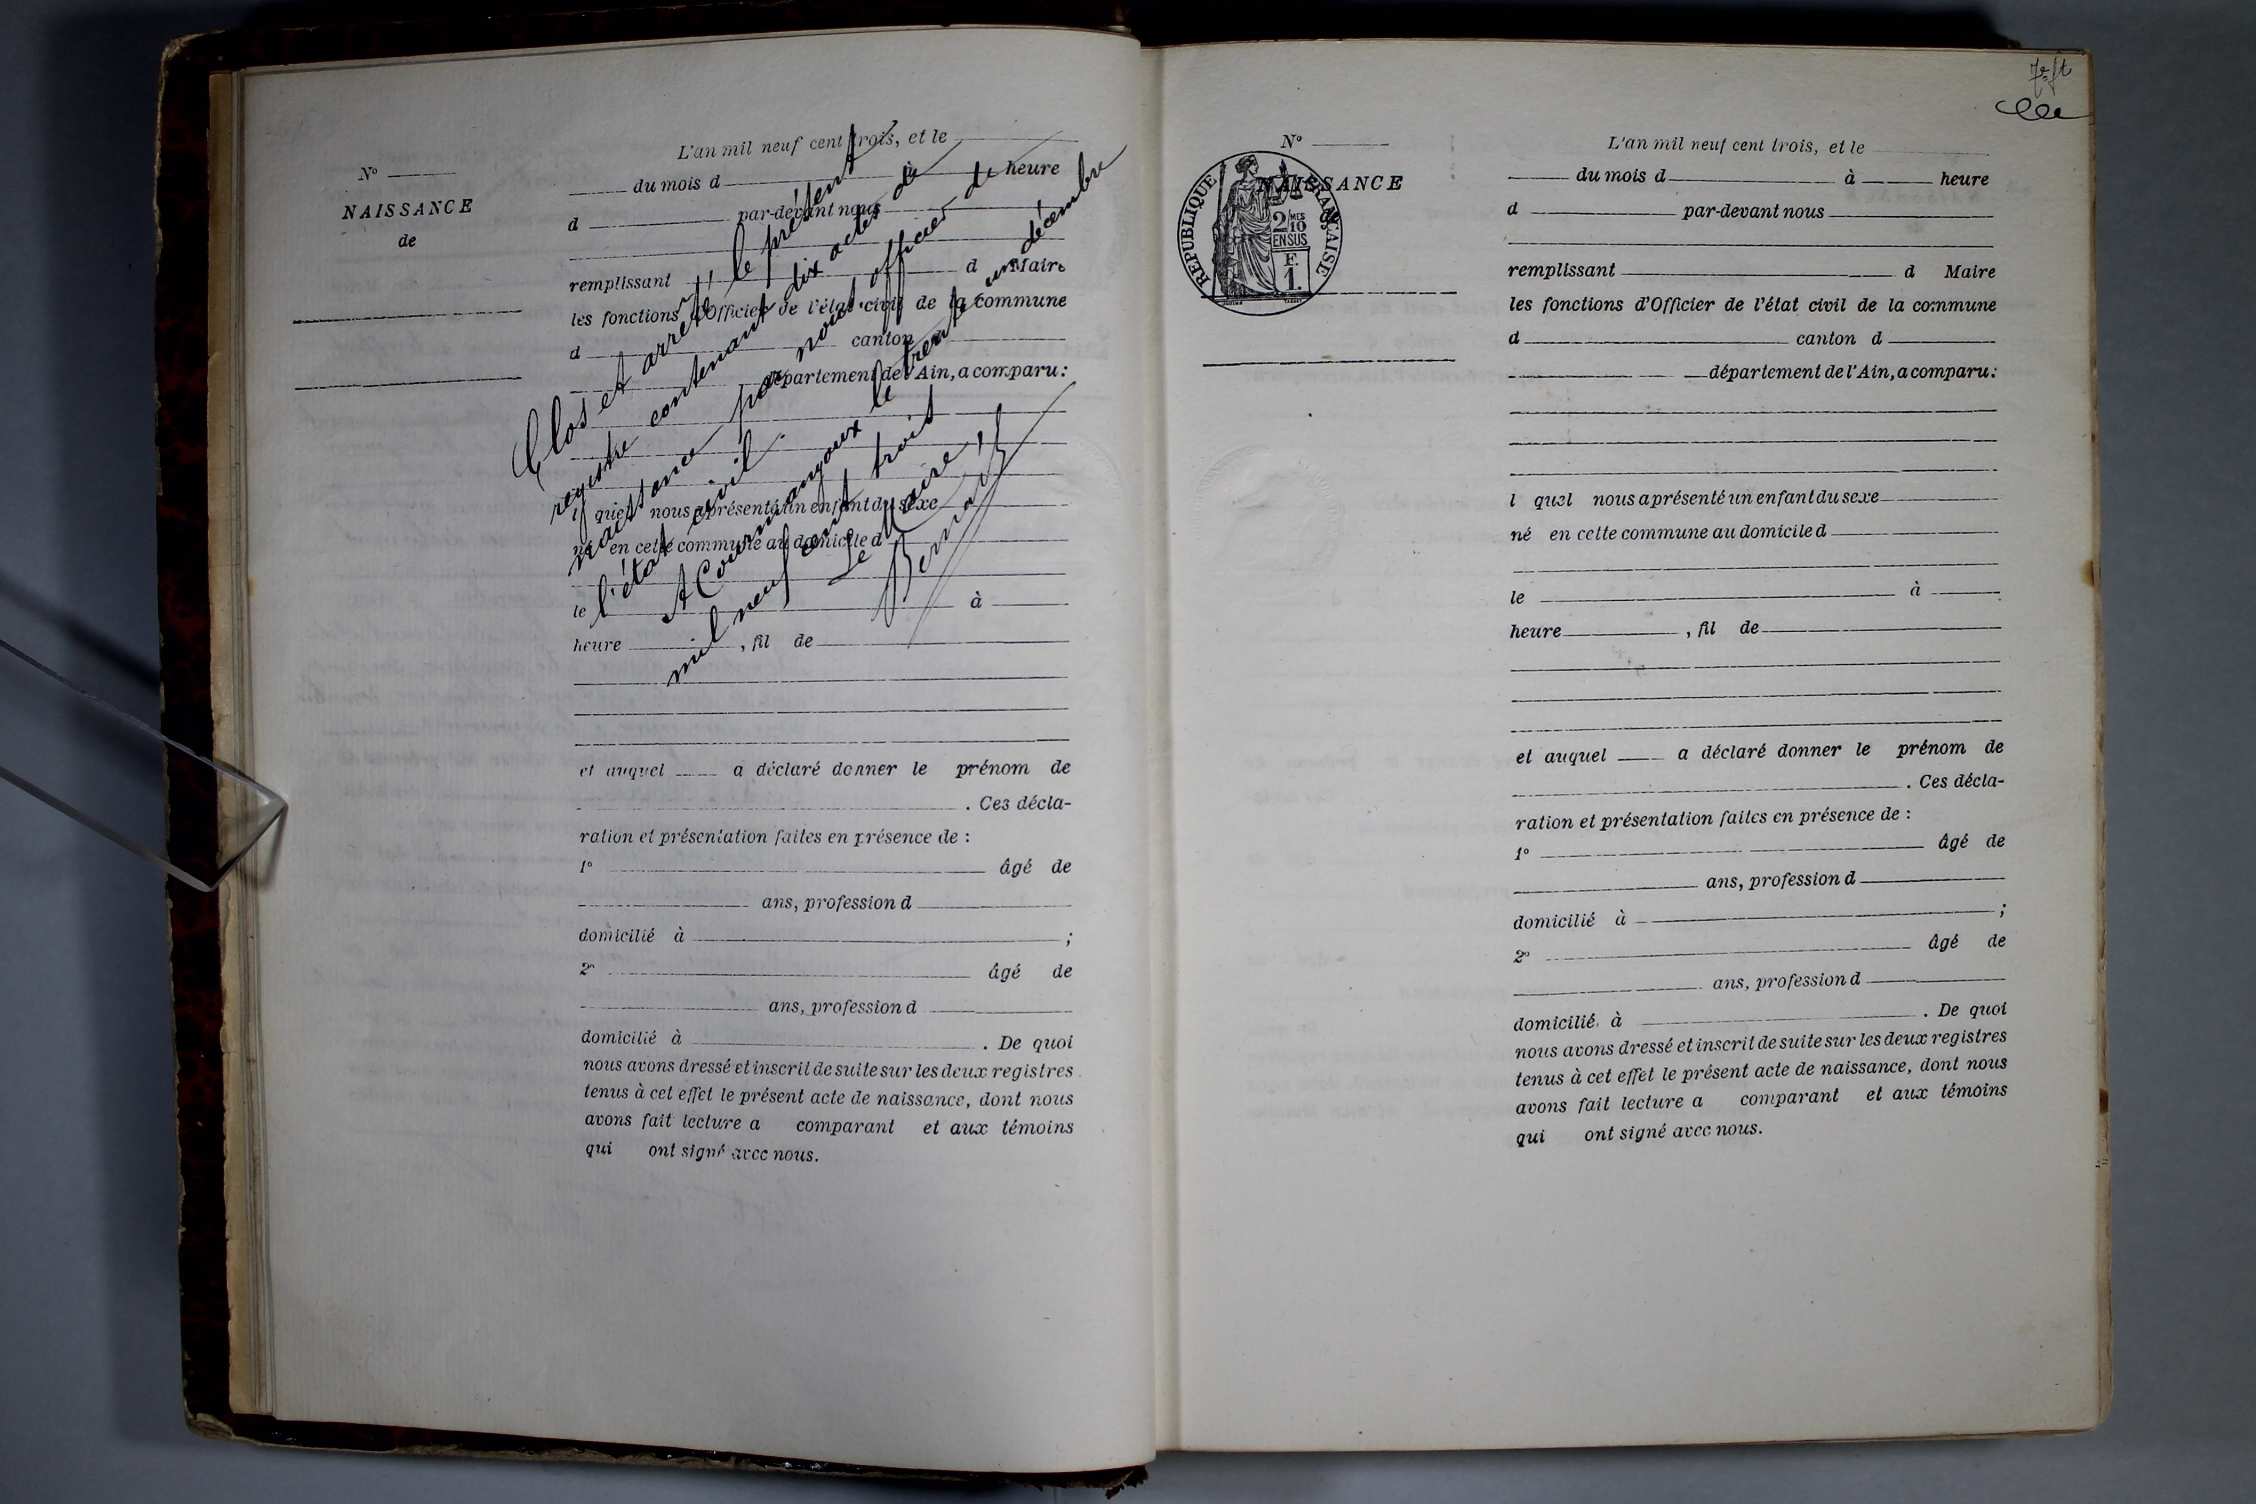 N°
NAISSANCE
de
L'an mil neuf cent trois, et le
du mois d à heure
d par-devant nous
remplissant d Maire
les fonctions d'Officier de l'état civil de la commune
d canton d
département de l'Ain, a comparu:
l quel nous a présenté un enfant du sexe
né en cette commune au domicile d
le à
heure , fil de
et auquel a déclaré donner le prénom de
. Ces décla-
ration et présentation faites en présence de :
1° âgé de
ans, profession d
domicilié à ;
2° âgé de
ans, profession d
domicilié à . De quoi
nous avons dressé et inscrit de suite sur les deux registres
tenus à cet effet le présent acte de naissance, dont nous
avons fait lecture a comparant et aux témoins
qui ont signé avec nous.
Clos et arrêté, le présent
registre contenant dix actes de
naissance par nous, officier de
l'état civil.
A Courmangoux le trente un décembre
mil neuf cent trois
Le Maire,
N°
NAISSANCE
REPUBLIQUE FRANÇAISE
2/10
MES
EN SUS
F.
1.
L'an mil neuf cent trois, et le
du mois d à heure
d par-devant nous
remplissant d Maire
les fonctions d'Officier de l'état civil de la commune
d canton d
département de l'Ain, a comparu:
l quel nous a présenté un enfant du sexe
né en cette commune au domicile d
le à
heure , fil de
et auquel a déclaré donner le prénom de
. Ces décla-
ration et présentation faites en présence de :
1° âgé de
ans, profession d
domicilié à ;
2° âgé de
ans, profession d
domicilié à . De quoi
nous avons dressé et inscrit de suite sur les deux registres
tenus à cet effet le présent acte de naissance, dont nous
avons fait lecture a comparant et aux témoins
qui ont signé avec nous.